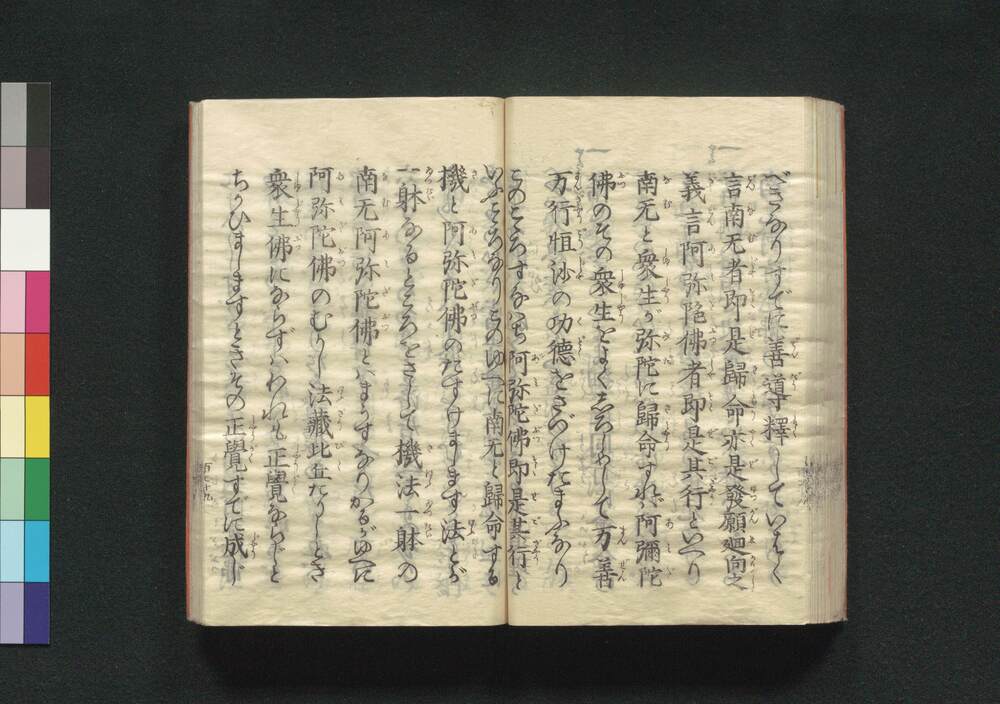 べきなりすでに善導釋していはく
言南无者即是歸命亦是發願廻向之
義言阿弥陁佛者即是其行といへり
南无と衆生が弥陀に歸命すれば阿彌陀
佛のその衆生をよくしろしめして万善
万行恒沙の功德をさづけたまふなり
このこゝろすなはち阿弥陀佛即是其行と
いふこゝろなりこのゆへに南无と歸命する
機と阿弥陀佛のたすけまします法とが
一躰なるところをさして機法一躰の
南无阿弥陀佛とはまうすなりかるがゆへに
阿弥陀佛のむかし法藏比丘たりしとき
衆生佛にならずはわれも正覺ならじと
ちかひましますときその正覺すでに成じ
百七十九